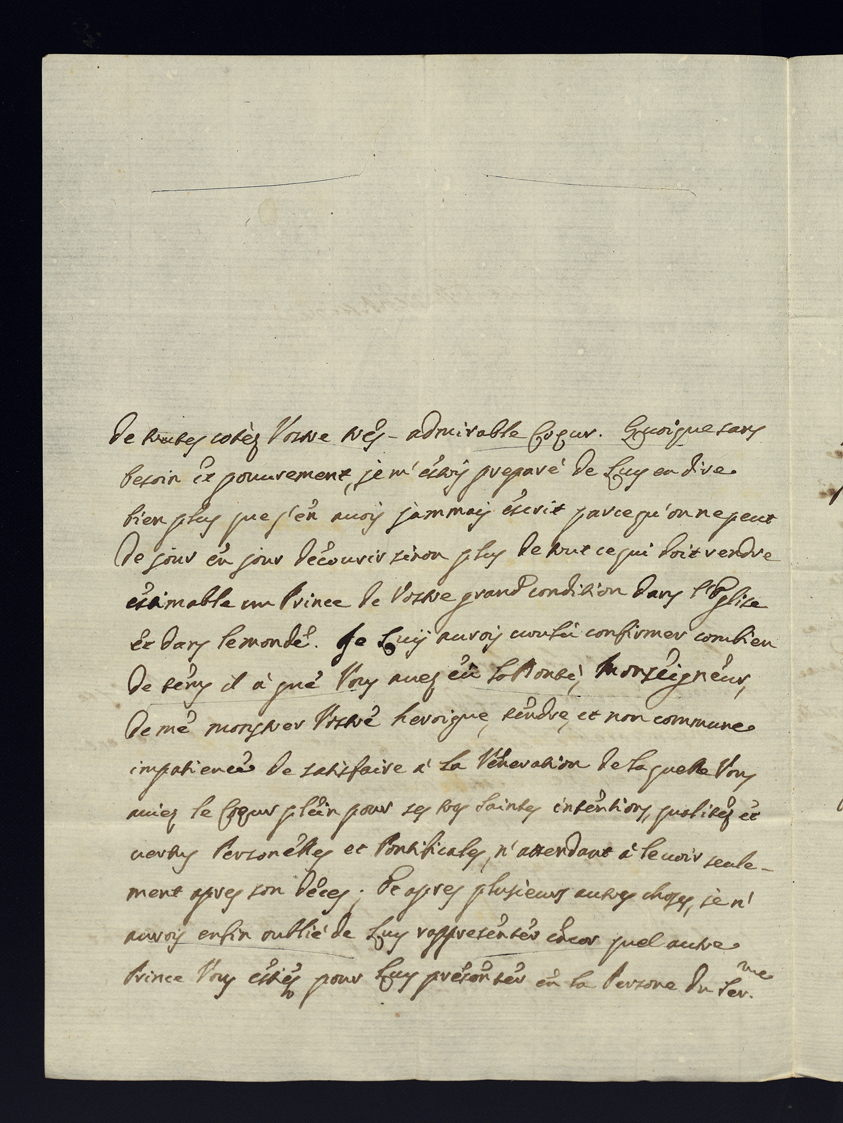 de toutes cotèz Vostre très-admirable Cœur. Quoique sans
besoin et pouvrement, je m'éstois preparé de Luy en dire
bien plus que j'én avois jammais éscrit parcequ'on ne peut
de jour én jour découvrir sinon plus de tout ce qui doit rendre
éstimable un Prince de Vostre grand condition dans l'Eglise
ét dans le monde. Je Luÿ aurois voulu confirmer combien
de téms il à que Vous avez éü la Bonté, Monséignéur,
de mé monstrer Vostré heroique, téndre, et non commune
impatience de satisfaire à la Véneration de laquelle Vous
aviez le Cœur pléin pour ses très saintes inténtions, qualitéz et
vertus Personélles et Pontificales, n'attendant à le voir seule-
ment apres son décés; Et apres plusieurs autres choses, je n'
aurois enfin oublié de Luy rappresénter éncor quel autre
Prince Vous éstiés pour Luy présénter én la Persone du Ser.me